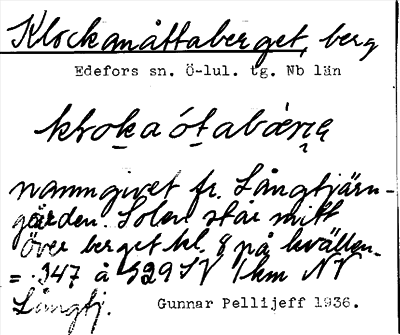 Klockanåttaberget, berg
Edefors sn. Ö-lul. tg. Nb län
kloka ótabærıę
namngivet fr. Långtjärn-
gården. Solen står mitt
över berget kl. 8 på kvällen.
= 347 å S29SV 1 km NV
Långtj.
Gunnar Pellijeff 1936.